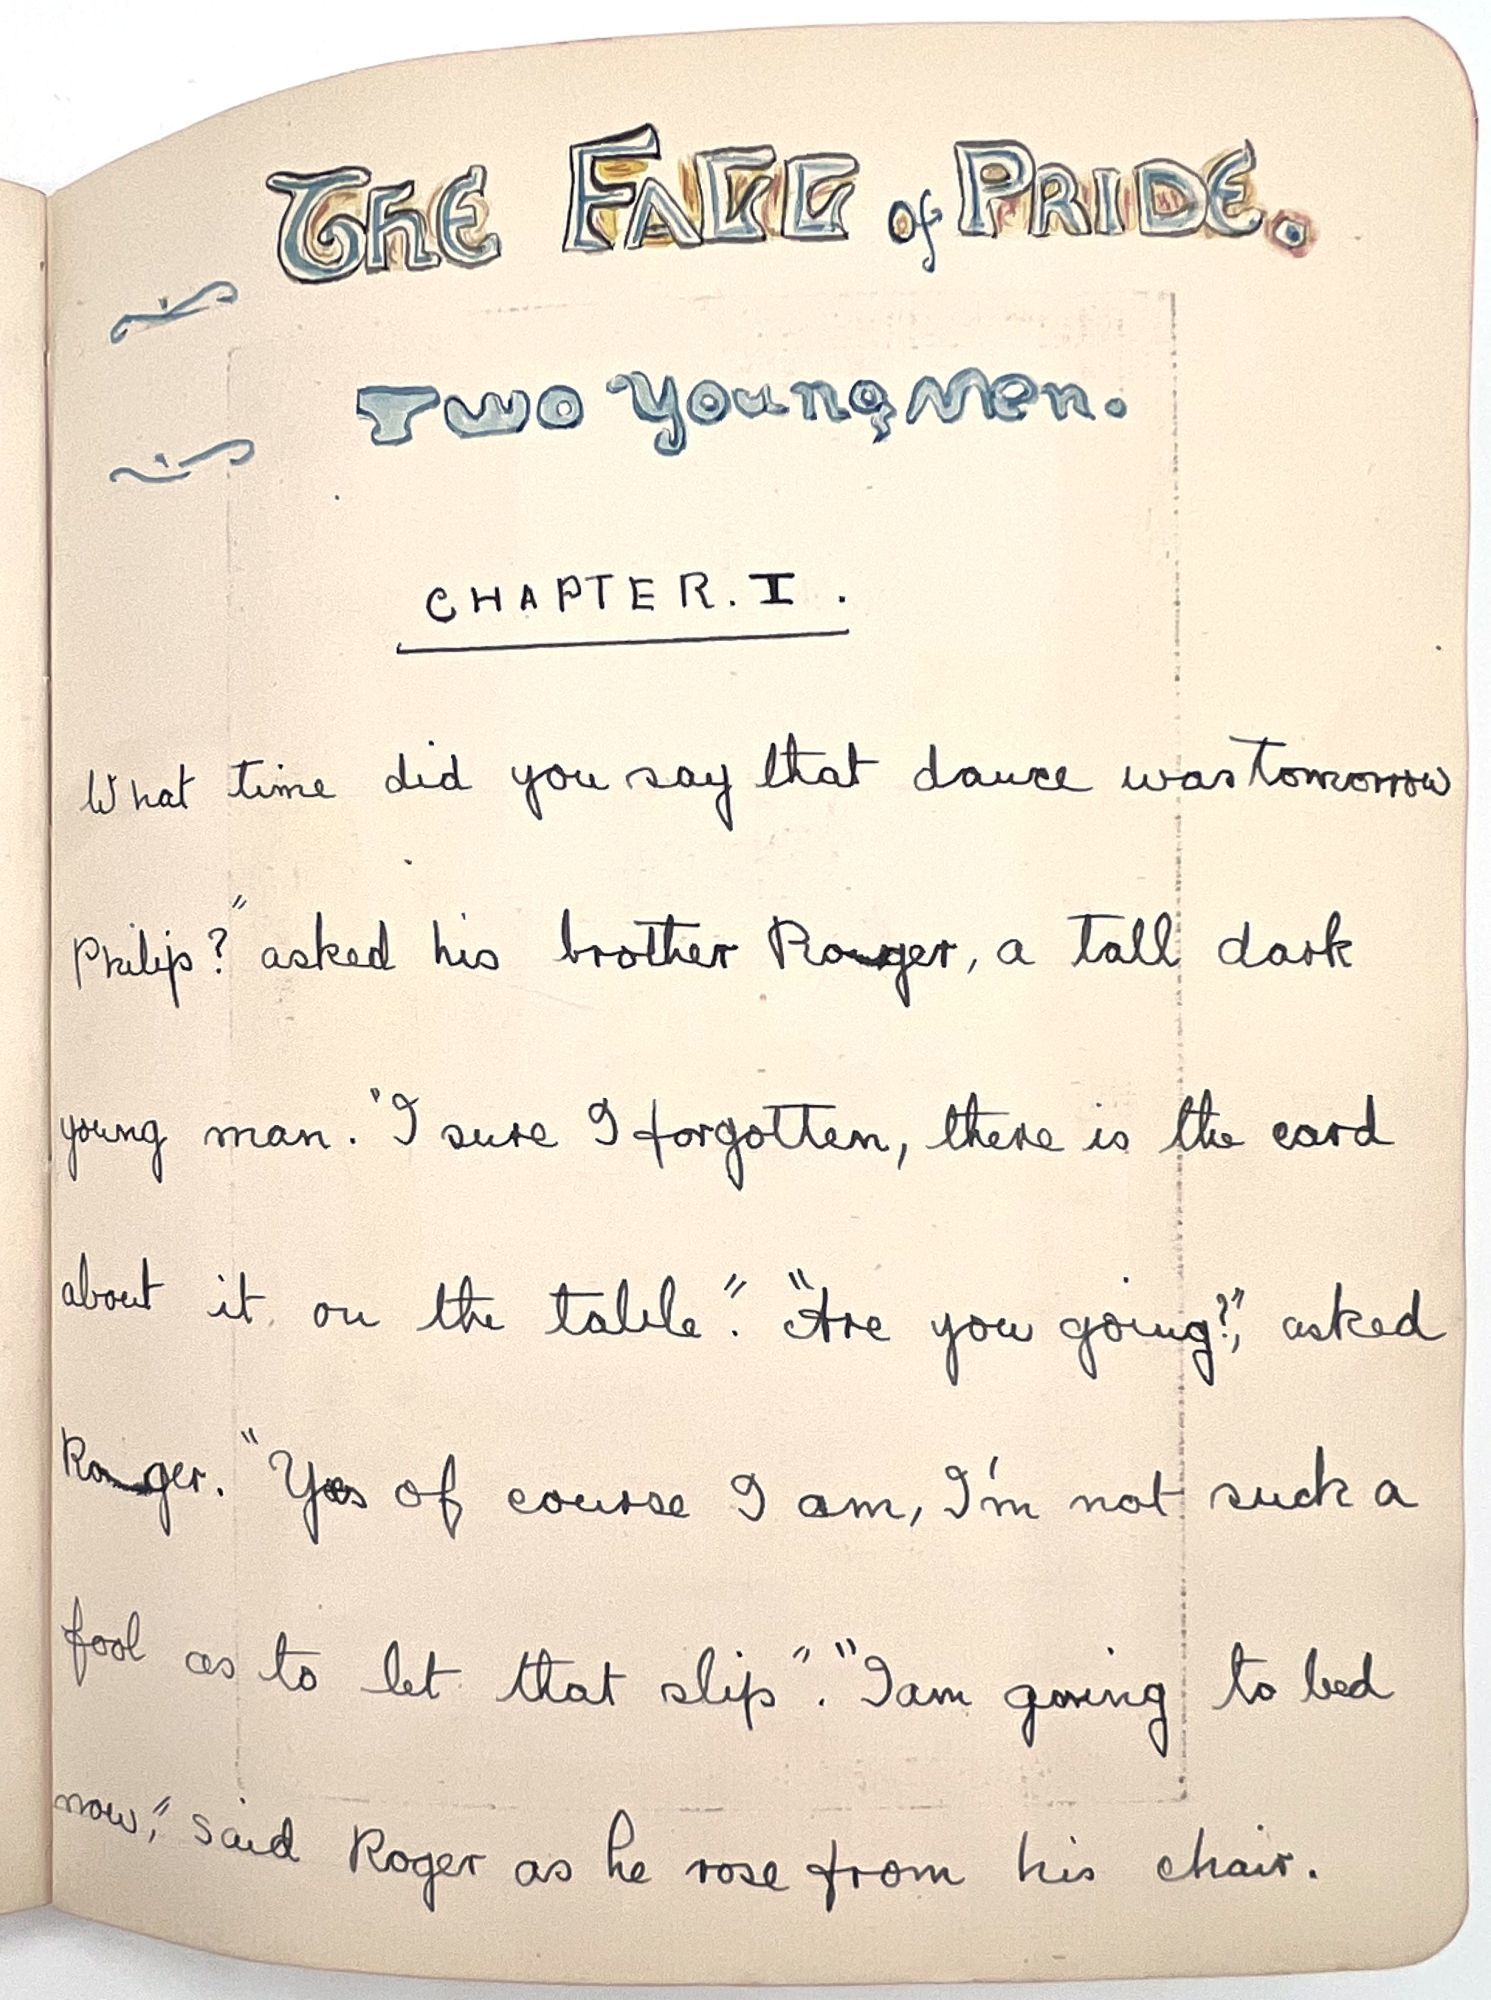 The Fall of Pride.
Two Young Men.
CHAPTER. I.
What time did you say that dance was tomorrow
Philip?" asked his brother Roger, a tall dark
young man. "I sure I forgotten, there is the card
about it on the table". "Are you going?", asked
Roger. "Yes of course I am, I'm not such a
fool as to let that slip". "I am going to bed
now", said Roger as he rose from his chair.